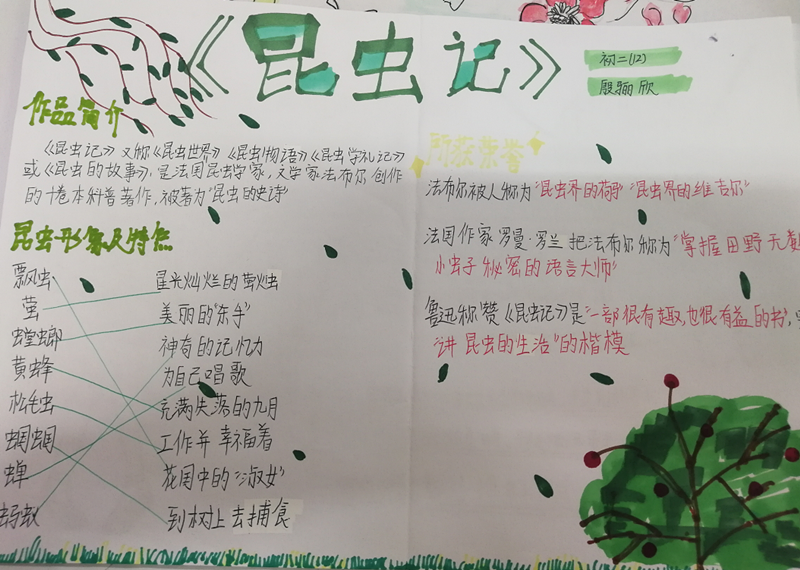 《昆虫记》
初二(12)
殷骊欣
作品简介
《昆虫记》又称《昆虫世界》《昆虫物语》《昆虫学札记》
或《昆虫的故事》,是法国昆虫学家,文学家法布尔创作
的十卷本科普著作,被著为"昆虫的史诗"
昆虫形象及特点
瓢虫
萤
螳螂
黄蜂
松毛虫
蝈蝈
蝉
蚂蚁
星光灿烂的萤火虫
美丽的"东手"
神奇的记忆力
为自己唱歌
充满失落的九月
工作并幸福着
花园中的"淑女"
到树上去捕食
所获荣誉
法布尔被人称为"昆虫界的荷马""昆虫界的维吉尔"
法国作家罗曼·罗兰把法布尔称为"掌握田野无数
小虫子秘密的语言大师"
鲁迅称赞《昆虫记》是"一部很有趣,也很有益的书",
"讲昆虫的生活"的楷模